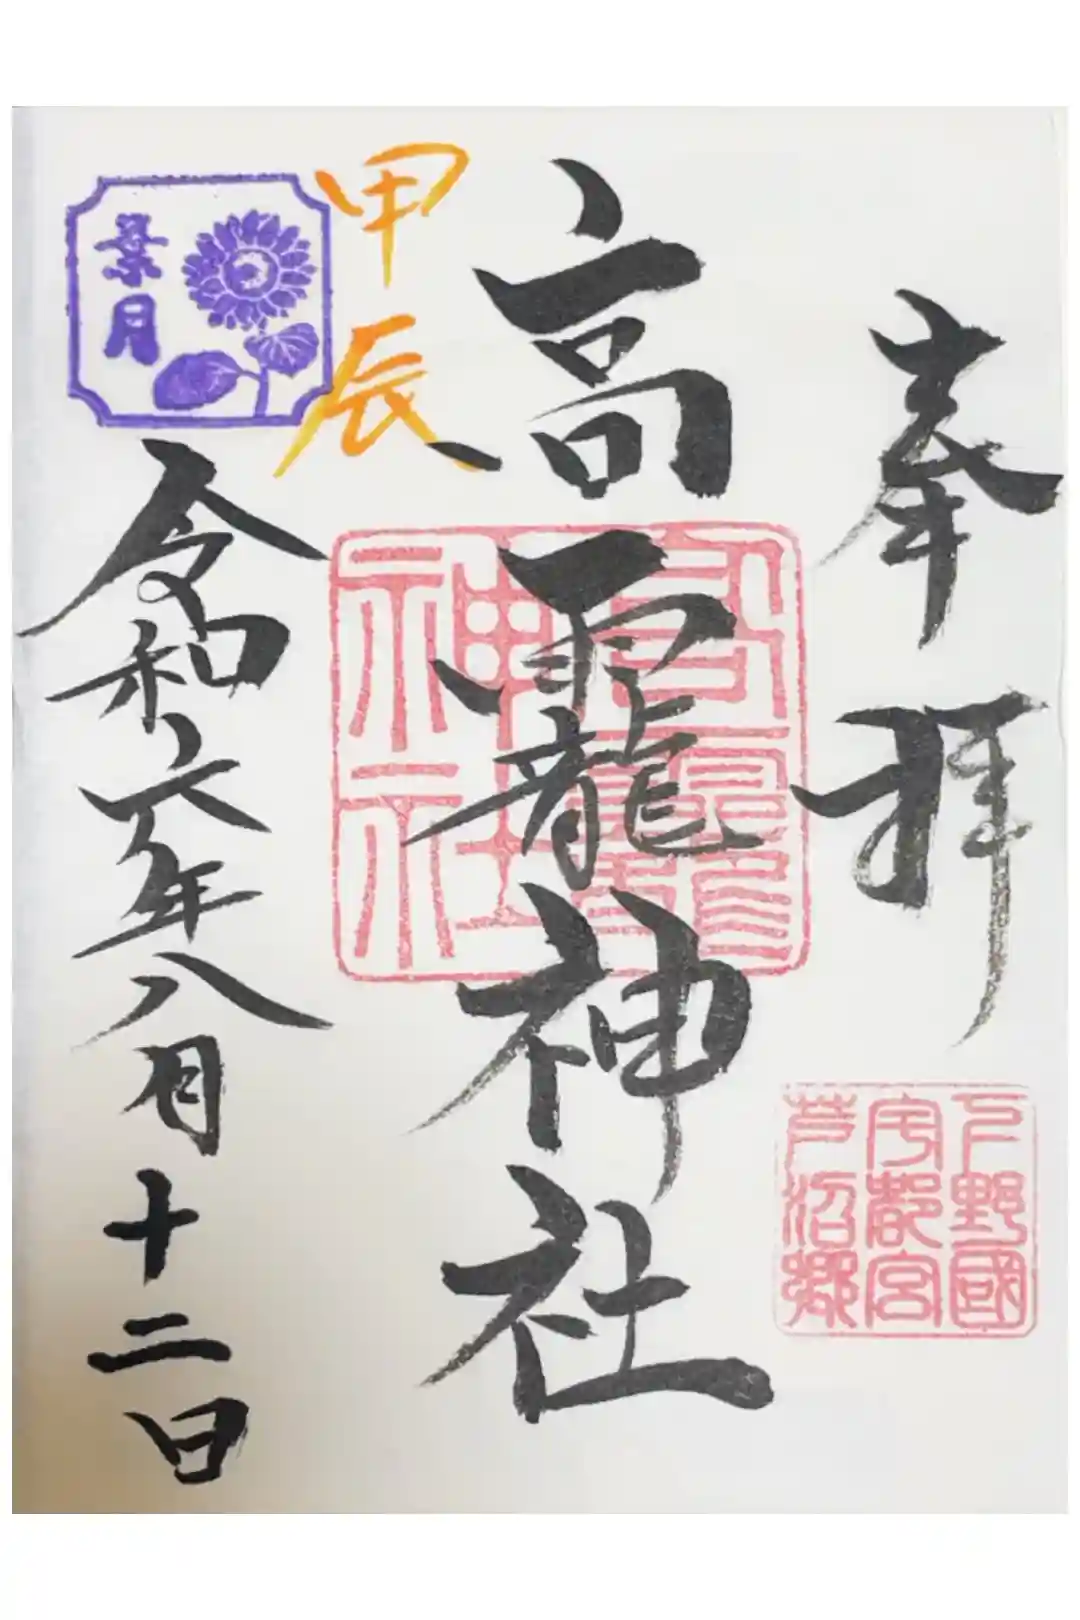 奉拝
下野國
宇都宮
芦沼郷
高龗神社
高龗
神社
甲辰
葉月
令和六年八月十二日